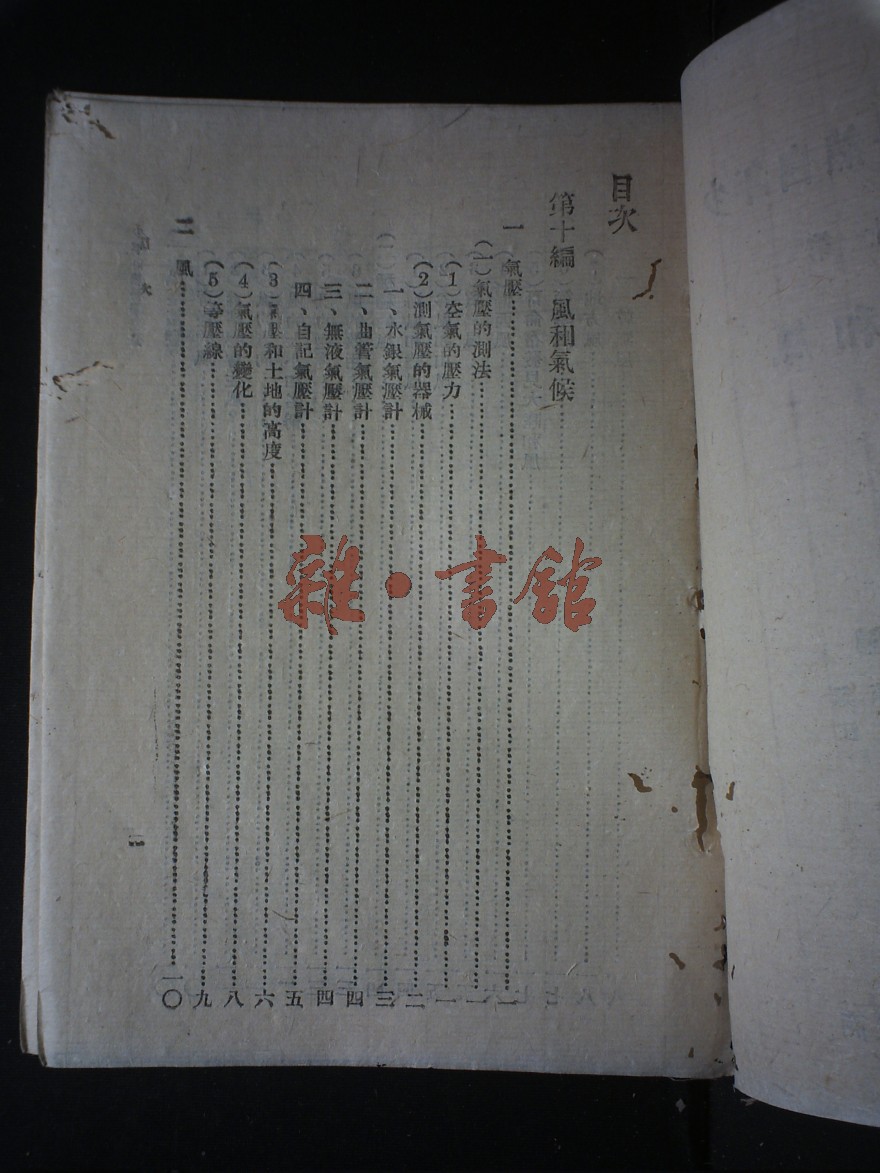 目次
第十編 風和氣候
一 氣壓……一
(一)氣壓的測法……一
(1)空氣的壓力……一
(2)測氣壓的器械……二
一、水銀氣壓計……三
二、曲管氣壓計……四
三、無液氣壓計……四
四、自記氣壓計……五
(3)氣壓和土地的高度……六
(4)氣壓的變化……八
(5)等壓線……九
二 風……一〇
雜·書館